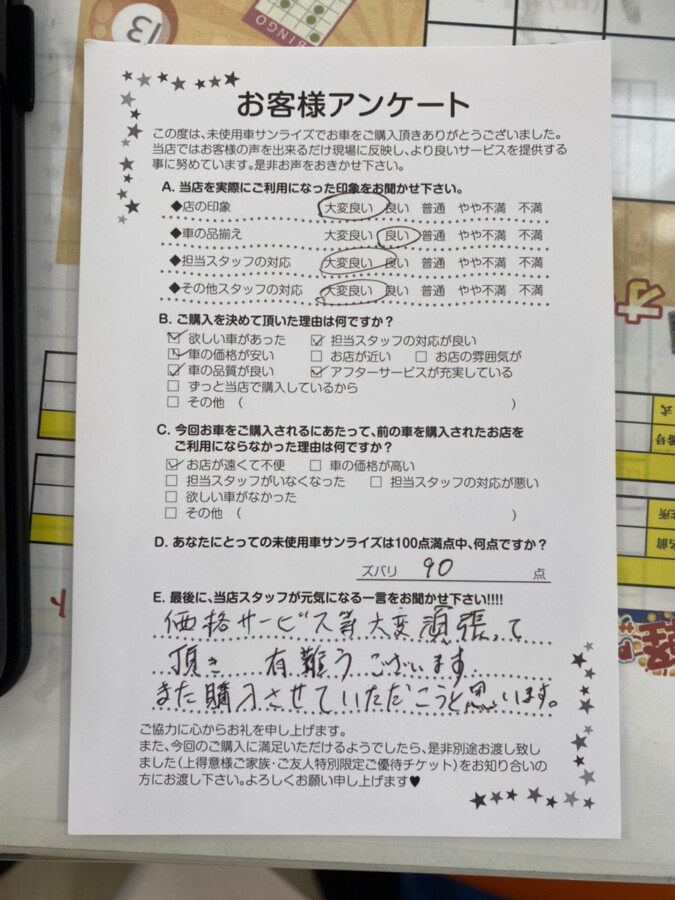 13
BINGO
お客様アンケート
この度は、未使用車サンライズでお車をご購入頂きありがとうございました。
当店ではお客様の声を出来るだけ現場に反映し、より良いサービスを提供する
事に努めています。是非お声をおきかせ下さい。
A. 当店を実際にご利用になった印象をお聞かせ下さい。
◆店の印象 大変良い 良い 普通 やや不満 不満
◆車の品揃え 大変良い 良い 普通 やや不満 不満
◆担当スタッフの対応 大変良い 良い 普通 やや不満 不満
◆その他スタッフの対応 大変良い 良い 普通 やや不満 不満
B. ご購入を決めて頂いた理由は何ですか？
☑ 欲しい車があった ☑ 担当スタッフの対応が良い
☑ 車の価格が安い □ お店が近い □ お店の雰囲気が
☑ 車の品質が良い ☑ アフターサービスが充実している
□ ずっと当店で購入しているから
□ その他 ( )
C. 今回お車をご購入されるにあたって、前の車を購入されたお店を
ご利用にならなかった理由は何ですか？
☑ お店が遠くて不便 □ 車の価格が高い
□ 担当スタッフがいなくなった □ 担当スタッフの対応が悪い
□ 欲しい車がなかった
□ その他 ( )
D. あなたにとっての未使用車サンライズは100点満点中、何点ですか？
ズバリ 90 点
E. 最後に、当店スタッフが元気になる一言をお聞かせ下さい!!!!
価格サービス等大変頑張って
頂き 有難うございます
また購入させていただこうと思います。
ご協力に心からお礼を申し上げます。
また、今回のご購入に満足いただけるようでしたら、是非別途お渡し致し
ました(上得意様ご家族・ご友人特別限定ご優待チケット)をお知り合いの
方にお渡し下さい。よろしくお願い申し上げます♥